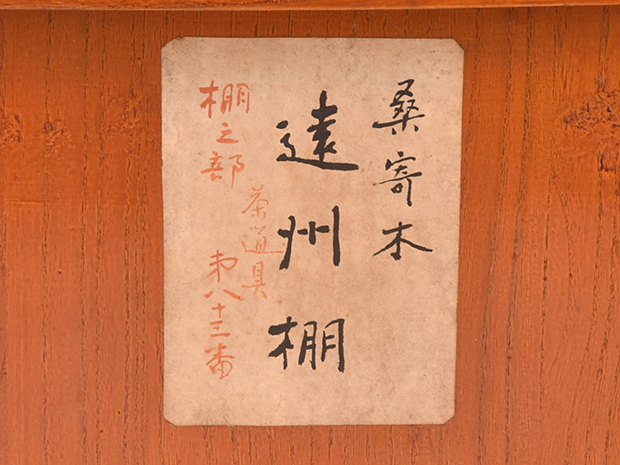 桑寄木
遠州棚
茶道具
棚之部
第八十三番